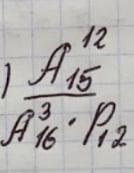 ) A₁₅¹²
A₁₆³ · P₁₂